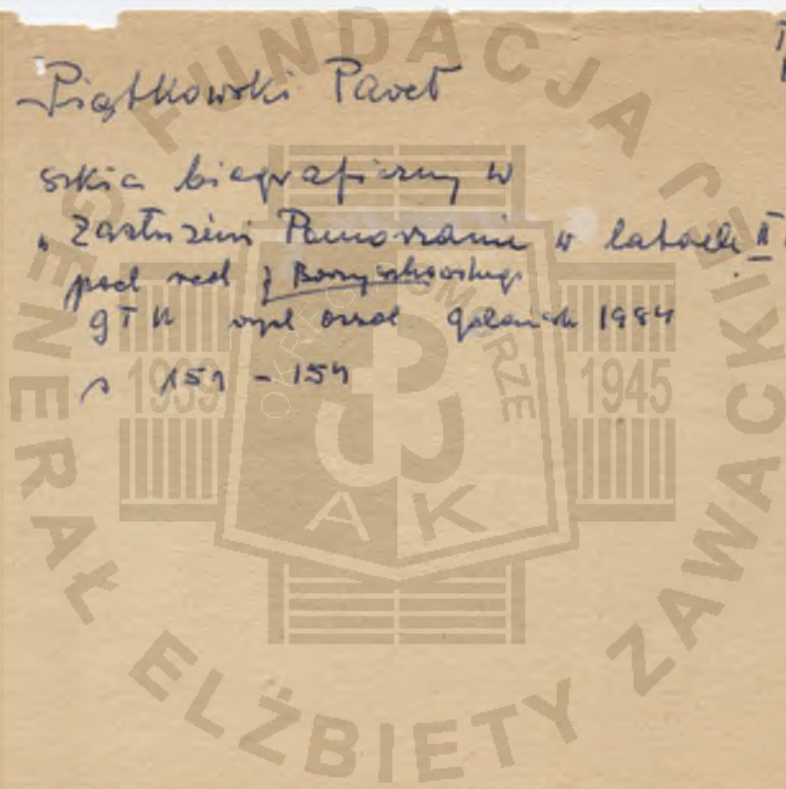 Piątkowski Paweł
szkic biograficzny w
„Zasłużeni Pomorzanie w latach II
pod red J Borzyszkowskiego
GTN wyd Ossol Gdańsk 1984
s 151 - 154
FUNDACJA GENERAŁ ELŻBIETY ZAWACKIEJ
OKRĘG POMORZE
1939 1945
AK